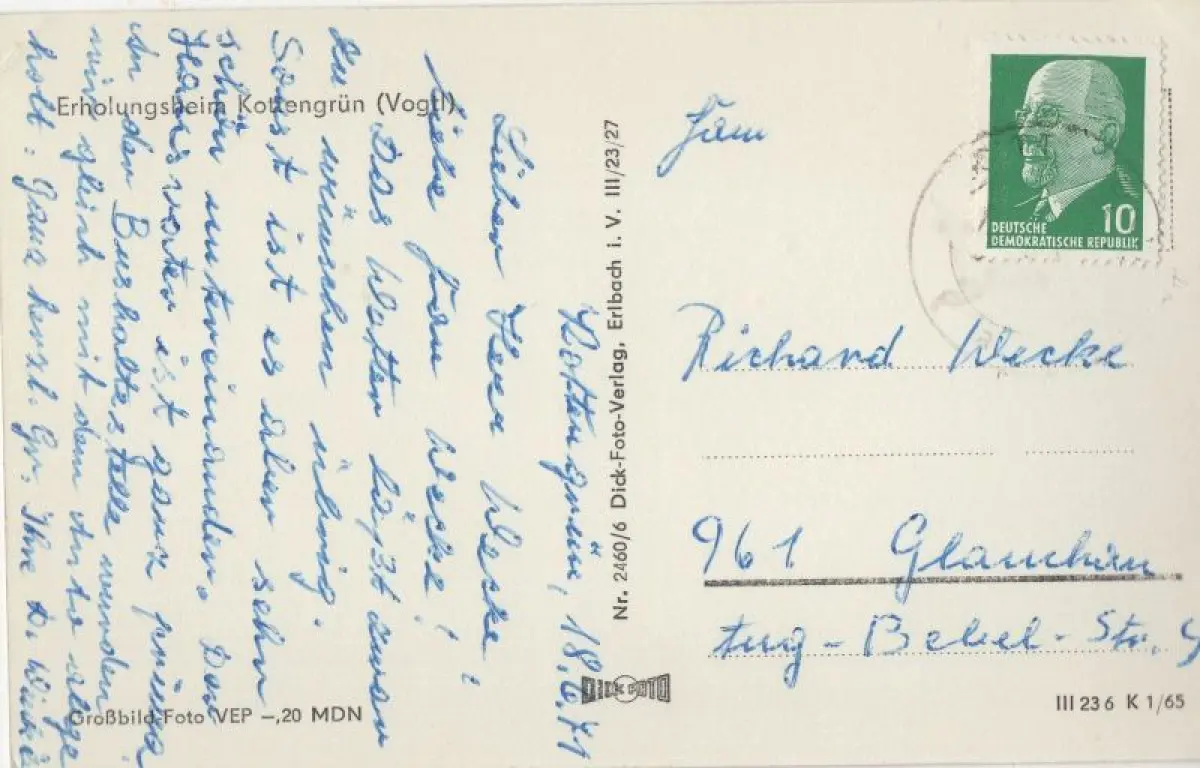 Erholungsheim Kottengrün (Vogtl)
Kottengrün, 18.6.71
Lieber Herr Wecke!
Liebe Frau Wecke!
Das Wetter läßt zwar
zu wünschen übrig.
Sonst ist es aber sehr
schön untereinander. Der
Hausvater ist ganz prima
An der Bushaltestelle wurden
wir gleich mit dem Auto abge
holt. Ganz herzl. Gr. Ihre D.
Großbild-Foto VEP –,20 MDN
Nr. 2460/6 Dick-Foto-Verlag, Erlbach i. V. III/23/27
DICK FOTO
DEUTSCHE
DEMOKRATISCHE REPUBLIK
10
Fam
Richard Wecke
961 Glauchau
Aug-Bebel-Str. 9
III 23 6 K 1/65